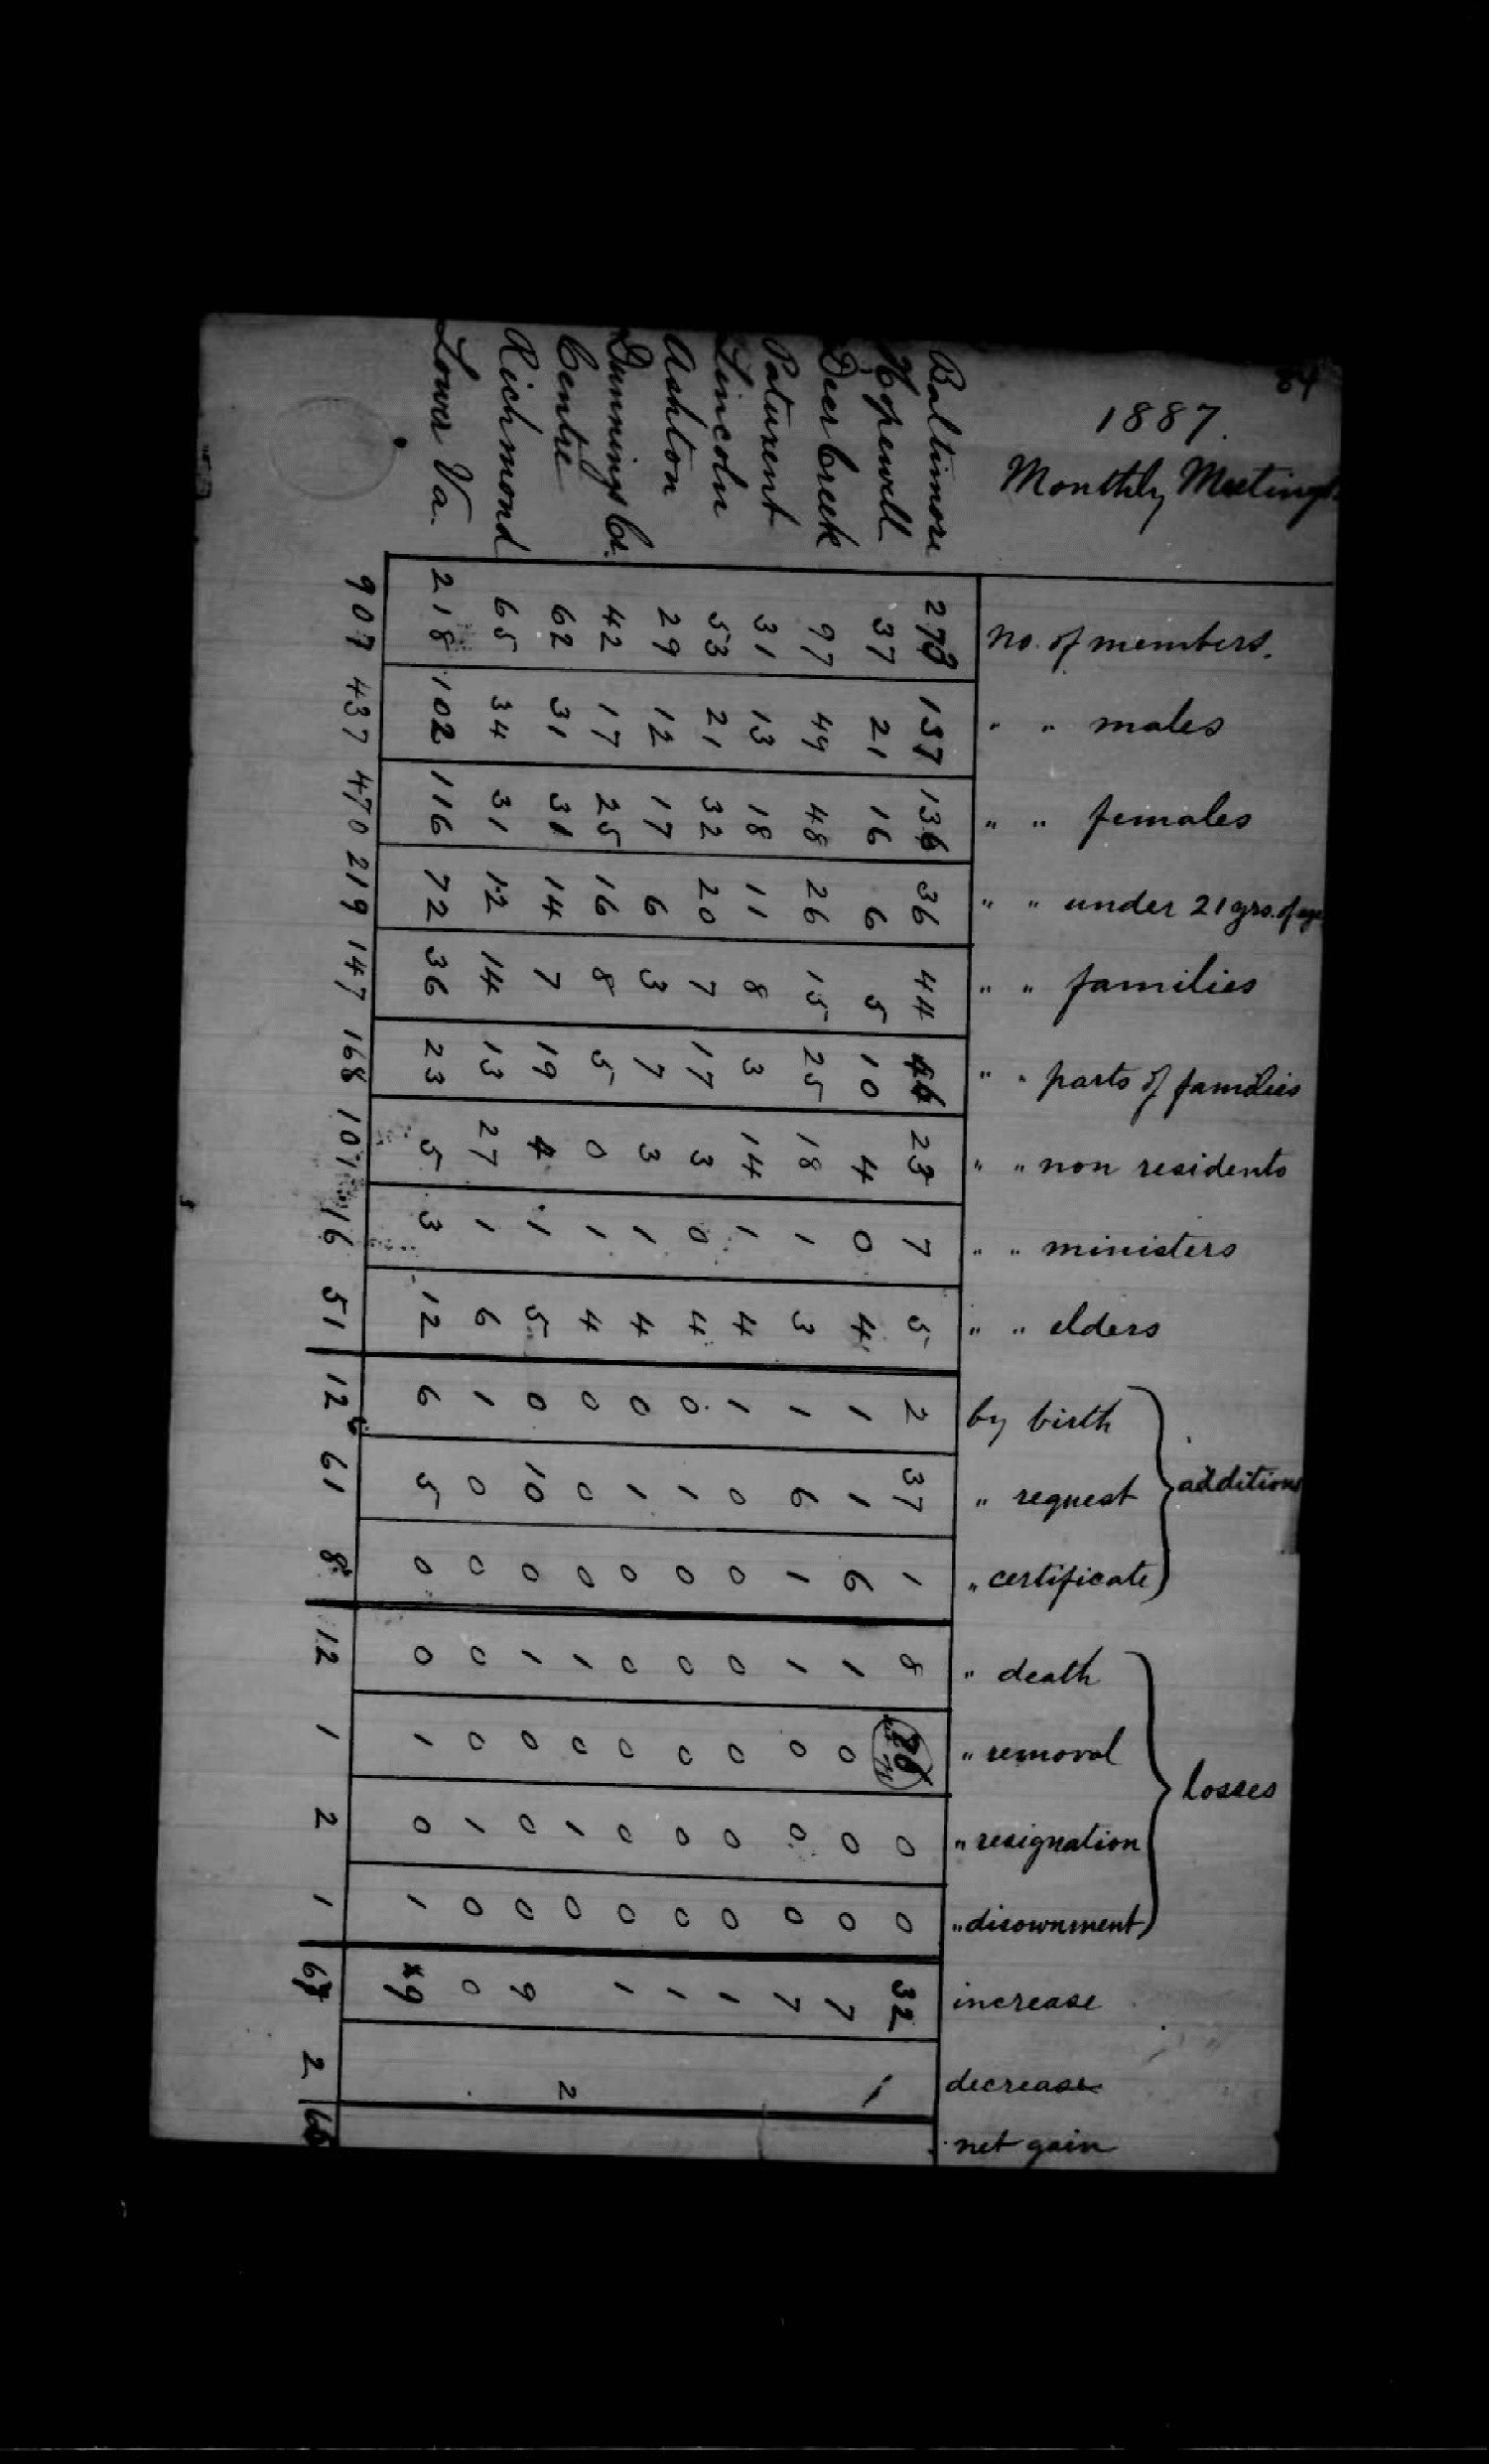 84
1887.
Monthly Meetings
no. of members.
" " males
" " females
" " under 21 yrs. of age
" " families
" " parts of families
" " non residents
" " ministers
" " elders
by birth
" request
" certificate
additions
" death
" removal
" resignation
" disownment
losses
increase
decrease
net gain
Baltimore 273 137 136 36 44 46 23 7 5 2 37 1 8 0 0 32
Hopewell 37 21 16 6 5 10 4 0 4 1 1 6 1 0 0 0 7 1
Deer Creek 97 49 48 26 15 25 18 1 3 1 6 1 1 0 0 0 7
Patuxent 31 13 18 11 8 3 14 1 4 1 0 0 0 0 0 0 1
Lincoln 53 21 32 20 7 17 3 0 4 0 1 0 0 0 0 0 1
Ashton 29 12 17 6 3 7 3 1 4 0 1 0 0 0 0 0 1
Dunnings Cr. 42 17 25 16 8 5 0 1 4 0 0 0 1 0 1 0 2
Centre 62 31 31 14 7 19 4 1 5 0 10 0 1 0 0 0 9
Richmond 65 34 31 12 14 13 27 1 6 1 0 0 0 0 1 0 0
Lower Va. 218 102 116 72 36 23 5 3 12 6 5 0 0 1 0 1 x9
907 437 470 219 147 168 101 16 51 12 61 8 12 1 2 1 67 2